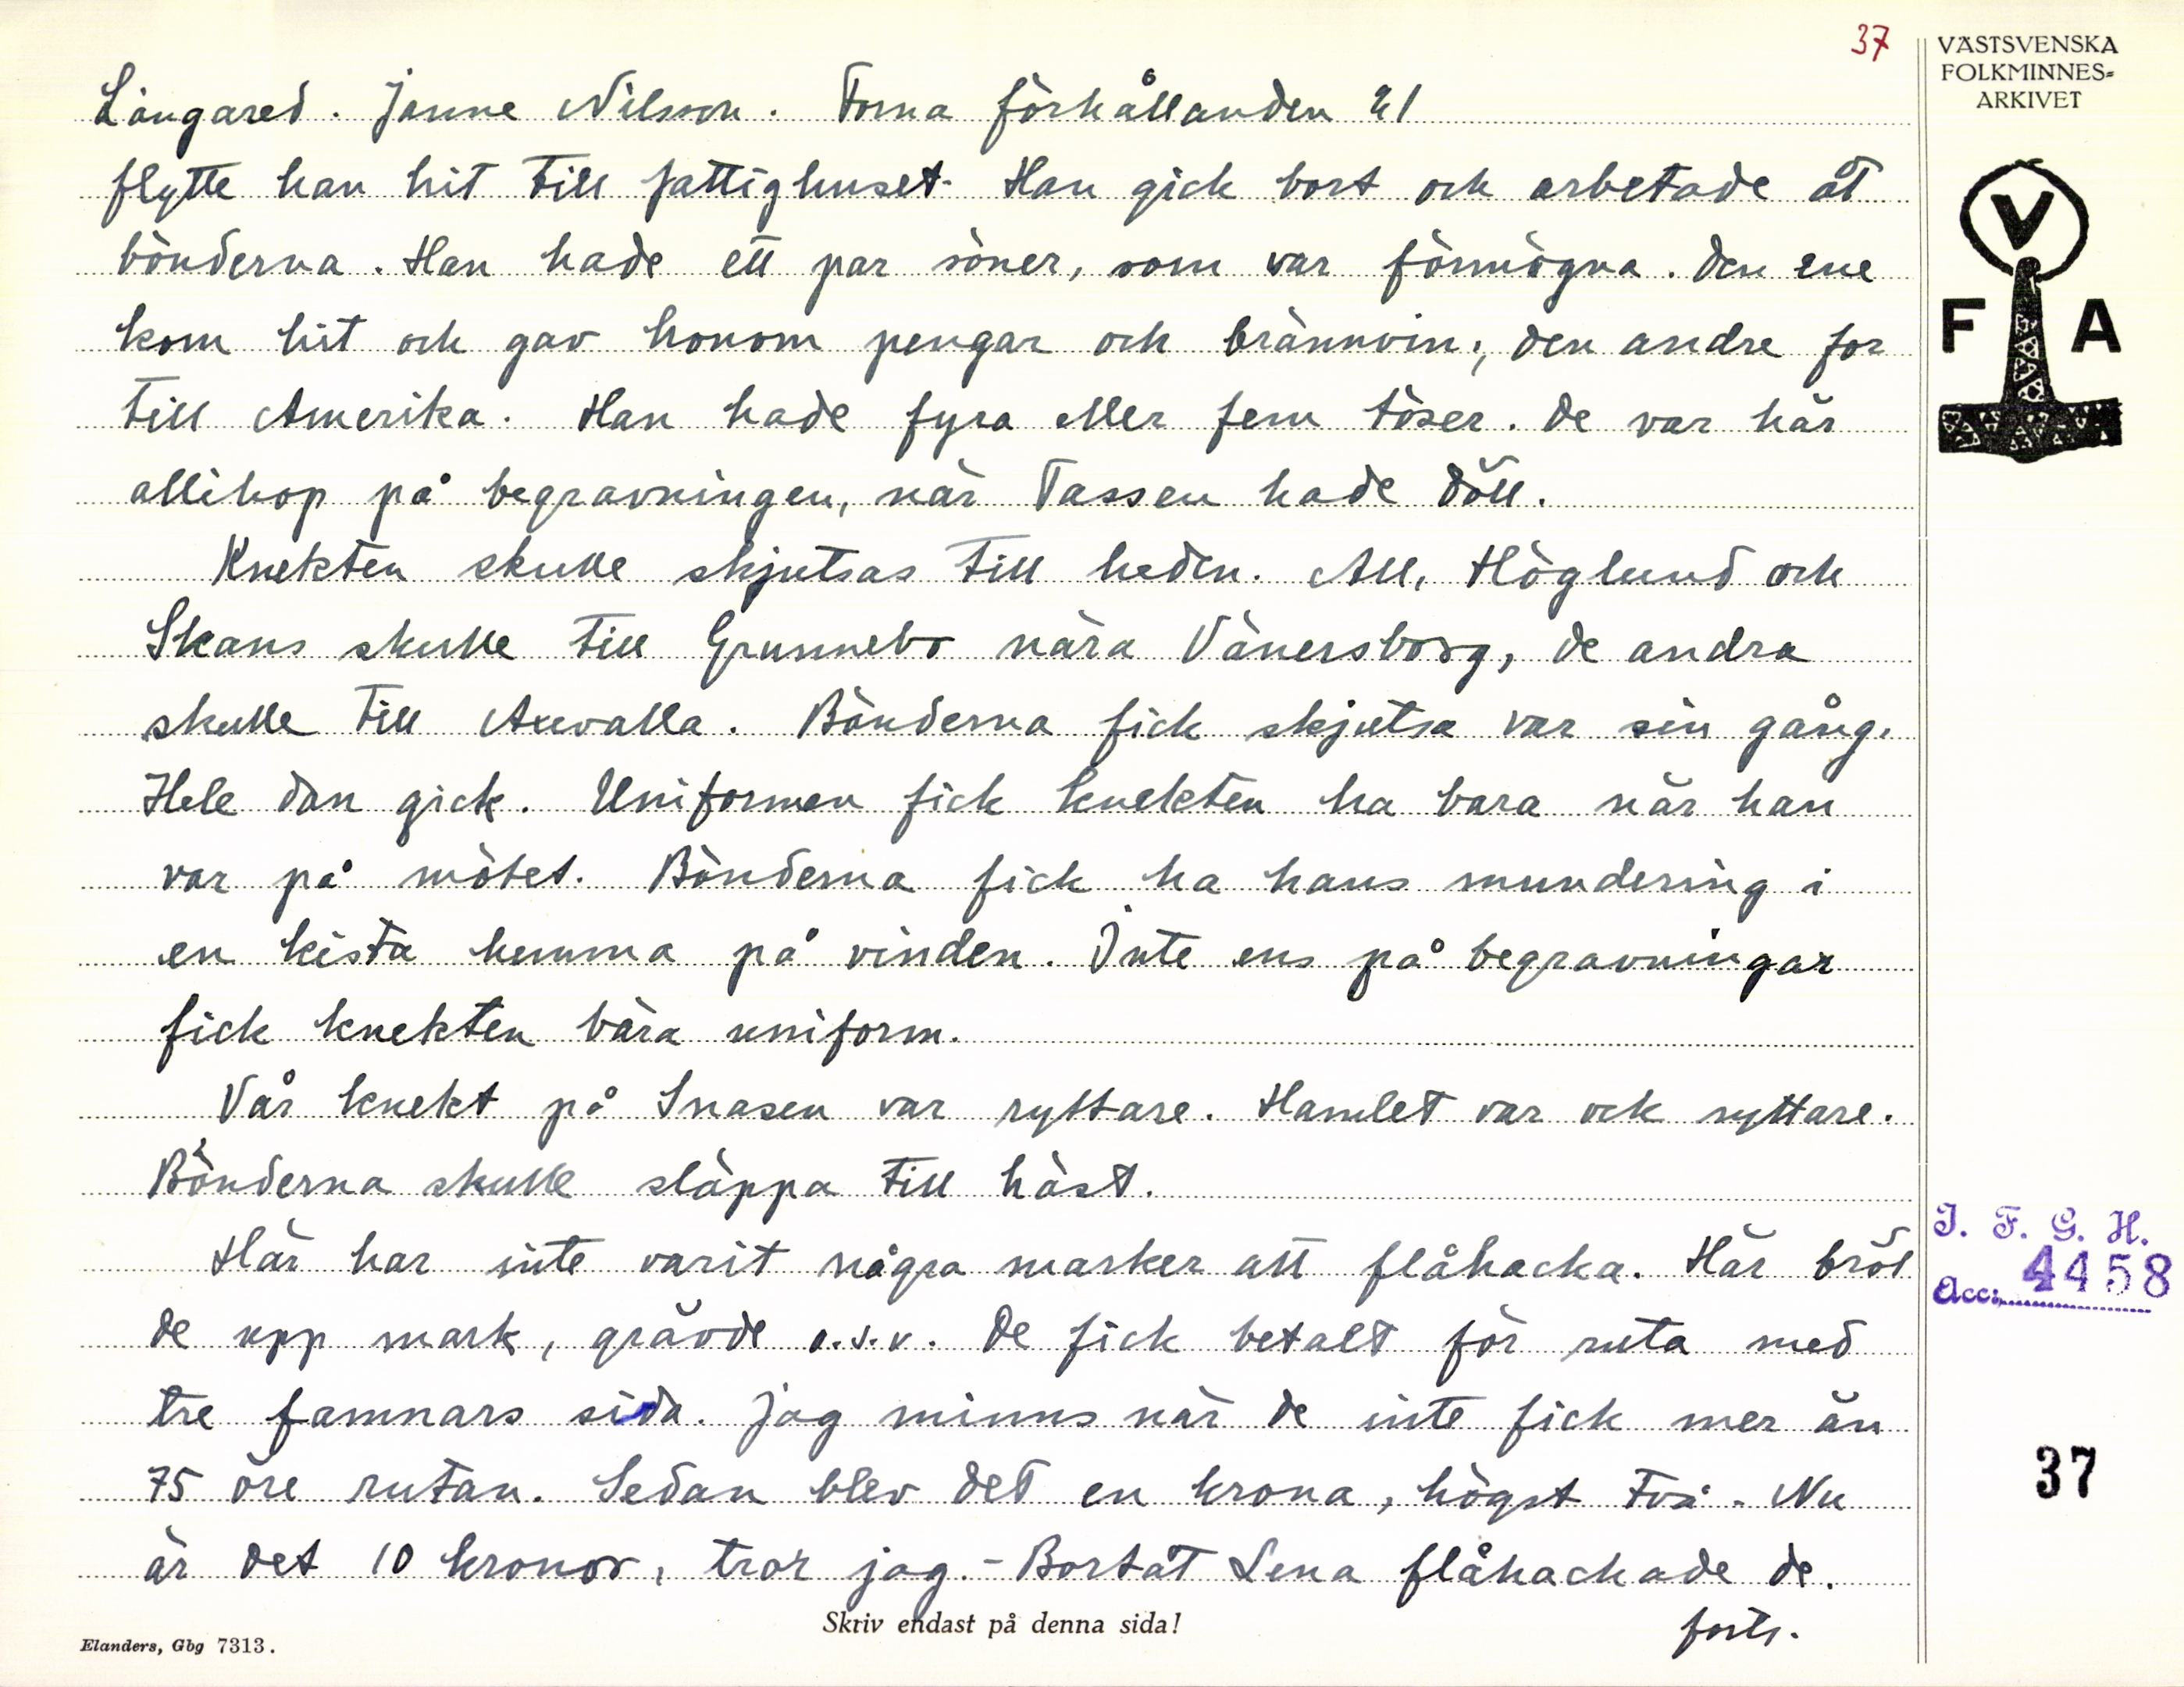 37
VÄSTSVENSKA
FOLKMINNES-
ARKIVET
V
F A
Långared. Janne Nilsson. Forna förhållanden 21
flytte han hit till fattighuset. Han gick bort och arbetade åt
bönderna. Han hade ett par söner, som var förmögna. Den ene
kom hit och gav honom pengar och brännvin, den andre for
till Amerika. Han hade fyra eller fem töser. De var här
allihop på begravningen, när Tassen hade dött.
Knekten skulle skjutsas till heden. All, Höglund och
Skans skulle till Grunnebo nära Vänersborg, de andra
skulle till Axvalla. Bönderna fick skjutsa var sin gång.
Hele dan gick. Uniformen fick knekten ha bara när han
var på mötet. Bönderna fick ha hans mundering i
en kista hemma på vinden. Inte ens på begravningar
fick knekten bära uniform.
Vår knekt på Snasen var ryttare. Hamlet var ock ryttare.
Bönderna skulle släppa till häst.
Här har inte varit några marker att flåhacka. Här bröt
de upp mark, grävde o.s.v. De fick betalt för ruta med
tre famnars sida. Jag minns när de inte fick mer än
75 öre rutan. Sedan blev det en krona, högst två. Nu
är det 10 kronor, tror jag. - Bortåt Lena flåhackade de.
forts.
I. F. G. H.
Acc: 4458
37
Skriv endast på denna sida!
Elanders, Gbg 7313.